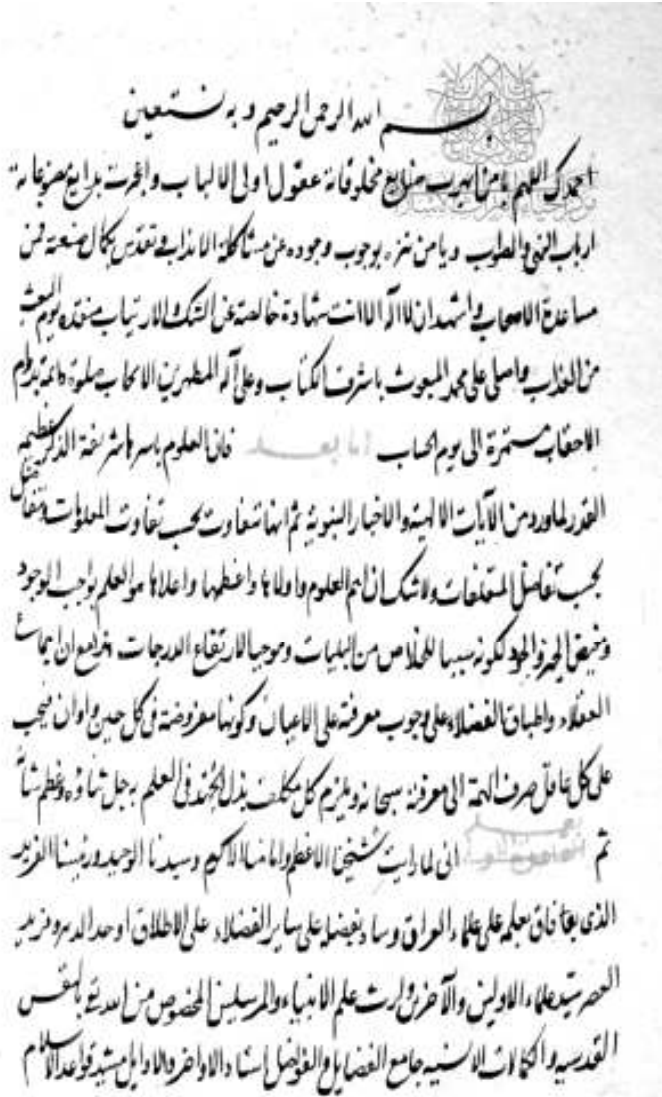 بسم الله الرحمن الرحيم وبه نستعين
احمدك اللهم يا من ابهرت صنايع مخلوقاته عقول اولى الالباب واخرست بدايع مصنوعاته
ارباب النهى والطوب ويا من تنزه بوجوب وجوده عن مشاكلة الانداد وتقدس بكمال صنعته عن
مساعدة الاصحاب واشهد ان لا اله الا انت شهادة خالصة عن الشك والارتياب منقذه يوم البعث
من العذاب واصلى على محمد المبعوث باشرف الكتاب وعلى آله المطهرين الانجاب صلوة دائمة بدوام
الاحقاب مستمرة الى يوم الحساب اما بعد فان العلوم باسرها شريفة الذكر عظيمه
القدر لما ورد من الآيات الالهية والاخبار النبوية ثم انها تتفاوت بحسب تفاوت المعلومات وتتفاضل
بحسب تفاضل المتعلقات ولا شك ان اهم العلوم واولاها واعظمها واعلاها هو العلم بواجب الوجود
ومفيض الخير والجود لكونه سببا للخلاص من البليات وموجبا لارتفاع الدرجات هذا مع ان اجماع
العقلاء واطباق الفضلاء على وجوب معرفته على الاعيان وكونها مفروضة فى كل حين واوان فيجب
على كل عاقل صرف الهمة الى معرفته سبحانه ويلزم كل مكلف بذل الجهد فى العلم به جل ثناؤه وعظم شأنه
ثم انى لما رايت شيخنا الاعظم وامامنا الاكرم وسيدنا الوحيد ورئيسنا الفريد
الذى فاق بعلمه على علماء العراق وساد بفضله على ساير الفضلاء على الاطلاق اوحد الدهر وفريد
العصر سيد علماء الاولين والآخرين وارث علم الانبياء والمرسلين المخصوص من الله تع بالنفس
القدسيه والكمالات الانسيه جامع الفضايل والفواضل استاد الاواخر والاوايل مشيد قواعد الاسلام